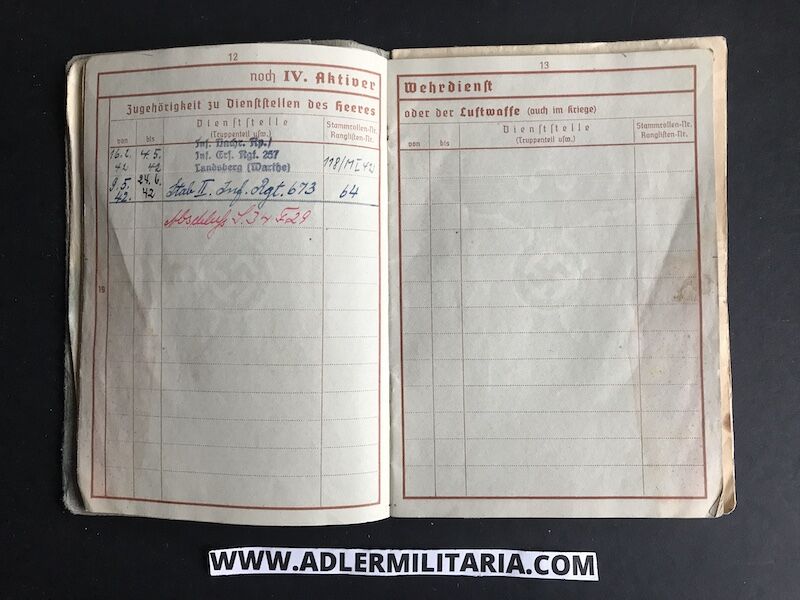 12
noch IV. Aktiver
Zugehörigkeit zu Dienststellen des Heeres
von
bis
Dienststelle
(Truppenteil usw.)
Stammrollen-Nr.
Ranglisten-Nr.
16.2.
42
4.5.
42
Inf. Nachr. Kp./
Inf. Ers. Rgt. 257
Landsberg (Warthe)
9.5.
42.
24.6.
42
Stab II. Inf. Rgt. 673
64
Abschluss S.
19
13
Wehrdienst
oder der Luftwaffe (auch im Kriege)
von
bis
Dienststelle
(Truppenteil usw.)
Stammrollen-Nr.
Ranglisten-Nr.
WWW.ADLERMILITARIA.COM